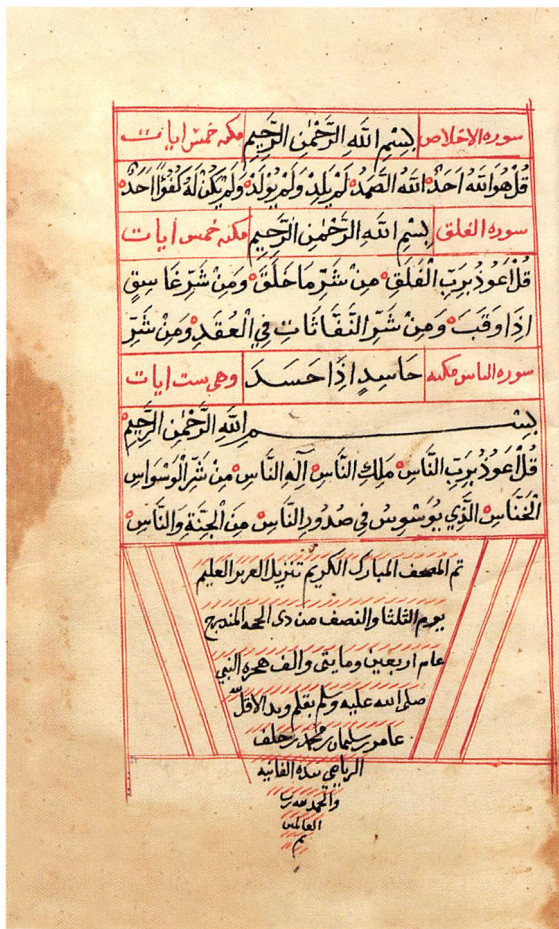 سورة الاخلاص بِسْمِ اللَّهِ الرَّحْمٰنِ الرَّحِيمِ مكية خمس ايات
قُلْ هُوَ اللَّهُ اَحَدٌ اللَّهُ الصَّمَدُ لَمْ يَلِدْ وَلَمْ يُولَدْ وَلَمْ يَكُنْ لَهُ كُفُوًا اَحَدٌ
سورة الفلق بِسْمِ اللَّهِ الرَّحْمٰنِ الرَّحِيمِ مكية خمس ايات
قُلْ اَعُوذُ بِرَبِّ الْفَلَقِ مِنْ شَرِّ مَا خَلَقَ وَمِنْ شَرِّ غَاسِقٍ
اِذَا وَقَبَ وَمِنْ شَرِّ النَّفَّاثَاتِ فِي الْعُقَدِ وَمِنْ شَرِّ
سورة الناس مكية حَاسِدٍ اِذَا حَسَدَ وهي ست ايات
بِسْمِ اللَّهِ الرَّحْمٰنِ الرَّحِيمِ
قُلْ اَعُوذُ بِرَبِّ النَّاسِ مَلِكِ النَّاسِ اِلٰهِ النَّاسِ مِنْ شَرِّ الْوَسْوَاسِ
الْخَنَّاسِ الَّذِي يُوَسْوِسُ فِي صُدُورِ النَّاسِ مِنَ الْجِنَّةِ وَالنَّاسِ
تم المصحف المبارك الكريم تنزيل العزيز العليم
يوم الثلثا والنصف من ذي الحجة
عام اربعين ومايتى والف هجرة النبي
صلى الله عليه وسلم بقلم ويد الاقل
عامر بن سليمان بن محمد بن خلف
الريامي بيده الفانيه
والحمد لله رب
العالمين
تم